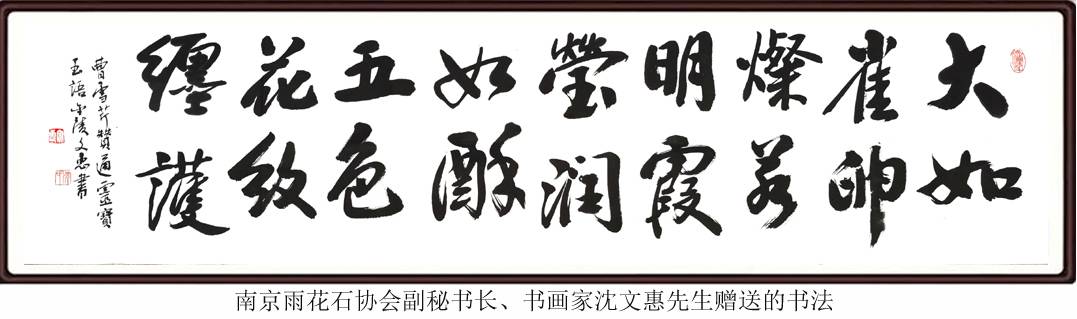 大如
雀卵
燦若
明霞
瑩润
如酥
五色
花紋
纏護
曹雪芹贊通靈寶
玉語金陵文惠書
南京雨花石协会副秘书长、书画家沈文惠先生赠送的书法